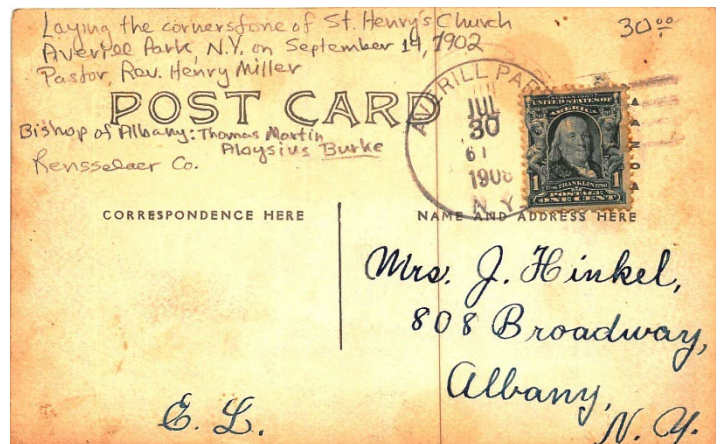 Laying the cornerstone of St. Henry's Church
Averill Park, N.Y. on September 14, 1902
Pastor, Rev. Henry Miller
30 00
POST CARD
Bishop of Albany: Thomas Martin
Aloysius Burke
Rensselaer Co.
AVERILL PARK
JUL
30
1908
N.Y.
UNITED STATES OF
AMERICA
1
FRANKLIN
POSTAGE
ONE CENT
CORRESPONDENCE HERE
NAME AND ADDRESS HERE
Mrs. J. Hinkel,
808 Broadway,
Albany,
N. Y.
E. L.